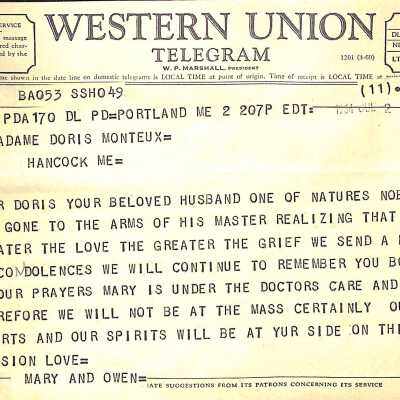 WESTERN UNION
TELEGRAM
W. P. MARSHALL, PRESIDENT
1201 (4-60)
message
unless its
char-
by the
LT
me shown in the date line on domestic telegrams is LOCAL TIME at point of origin. Time of receipt is LOCAL TIME at point of destination
BA053 SSH049
(11)
PDA170 DL PD=PORTLAND ME 2 207P EDT=
2
ADAME DORIS MONTEUX=
HANCOCK ME=
R DORIS YOUR BELOVED HUSBAND ONE OF NATURES NOB
GONE TO THE ARMS OF HIS MASTER REALIZING THAT
ATER THE LOVE THE GREATER THE GRIEF WE SEND A
CONDOLENCES WE WILL CONTINUE TO REMEMBER YOU BO
OUR PRAYERS MARY IS UNDER THE DOCTORS CARE AND
REFORE WE WILL NOT BE AT THE MASS CERTAINLY OU
RTS AND OUR SPIRITS WILL BE AT YUR SIDE ON THI
SION LOVE=
MARY AND OWEN=
IATE SUGGESTIONS FROM ITS PATRONS CONCERNING ITS SERVICE